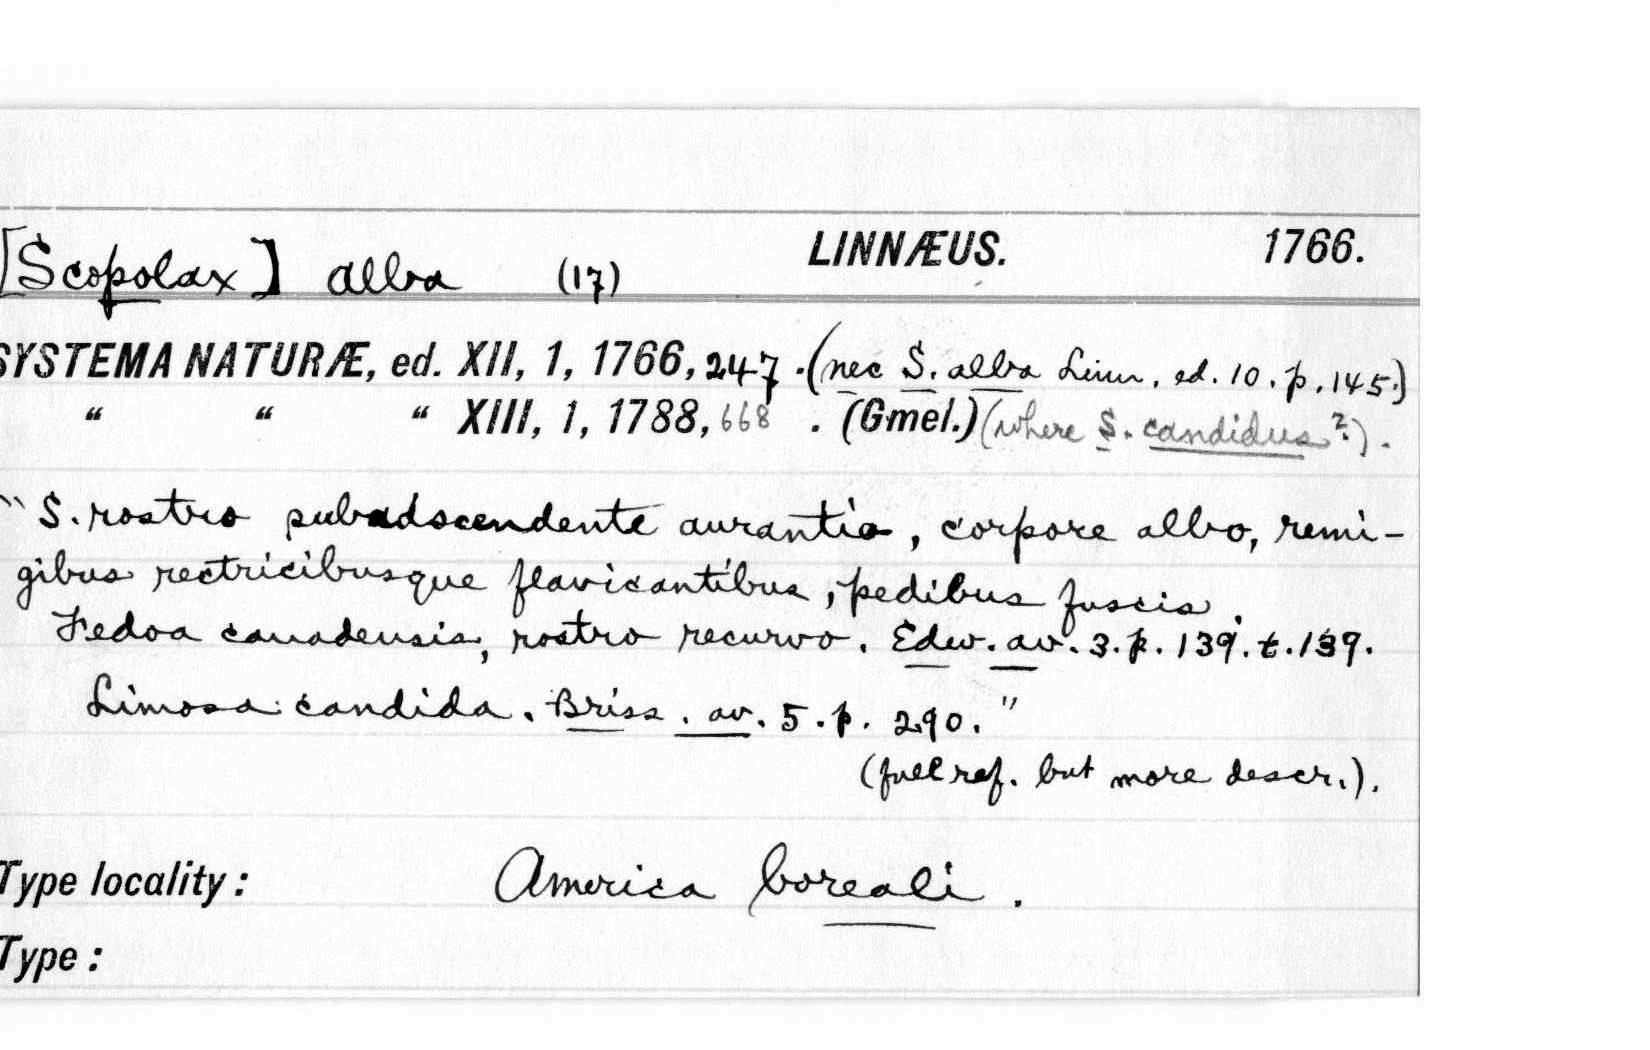 [Scopolax] alba (17) LINNÆUS. 1766.
SYSTEMA NATURÆ, ed. XII, 1, 1766, 247. (nec S. alba Linn. ed. 10. p. 145.)
“ “ “ XIII, 1, 1788, 668. (Gmel.) (where S. candidus?).
"S. rostro subadscendente aurantio, corpore albo, remi-
gibus rectricibusque flavicantibus, pedibus fuscis.
Fedoa canadensis, rostro recurvo. Edw. av. 3. p. 139. t. 139.
Limosa candida. Briss. av. 5. p. 290."
(full ref. but more descr.).
Type locality: America boreali.
Type: